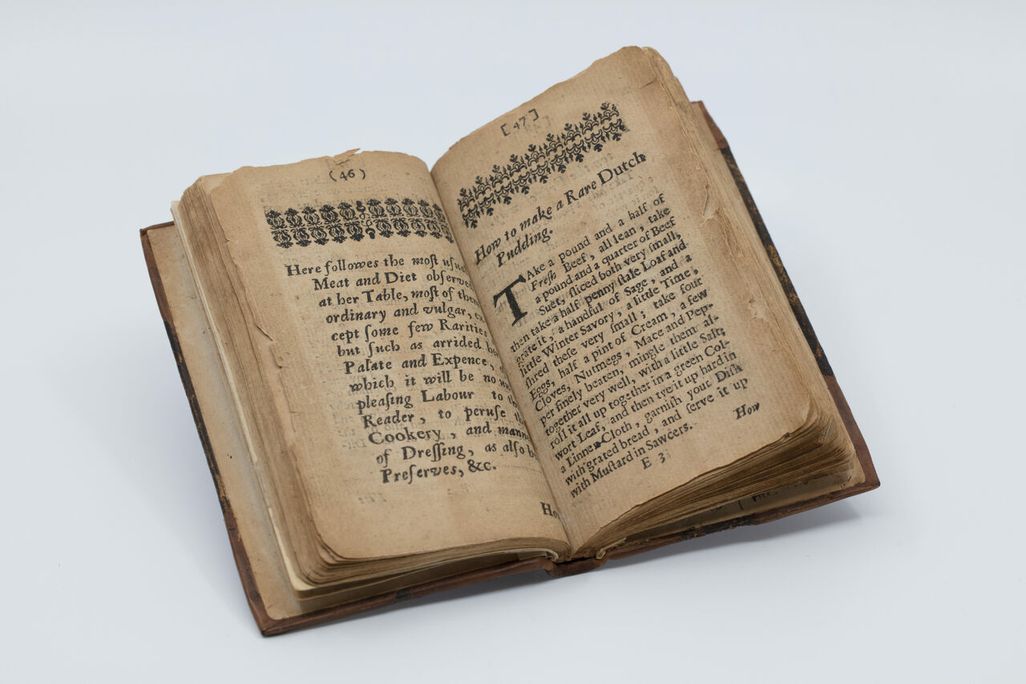 (46)
Here followes the moſt uſu
Meat and Diet obſerve
at her Table, moſt of the
ordinary and vulgar, ex
cept ſome few Rarities
but ſuch as arrided he
Palate and Expence
which it will be no un
pleaſing Labour to the
Reader, to peruſe the
Cookery, and mann
of Dreſſing, as alſo h
Preſerves, &c.
Ho
[47]
How to make a Rare Dutch
Pudding.
TAke a pound and a half of
Freſh Beef, all lean, take
a pound and a quarter of Beef
Suet, ſliced both very ſmall,
then take a half-penny ſtale Loaf and
grate it, a handful of Sage, and a
little Winter Savory, a little Time,
ſhred theſe very ſmall; take four
Eggs, half a pint of Cream, a few
Cloves, Nutmegs, Mace and Pep-
per finely beaten, mingle them al-
together very well, with a little Salt;
roll it all up together in a green Col-
wort Leaf, and then tye it up hard in
a Linnen-Cloth, garniſh your Diſh
with grated bread, and ſerve it up
with Muſtard in Sawcers.
E 3
How